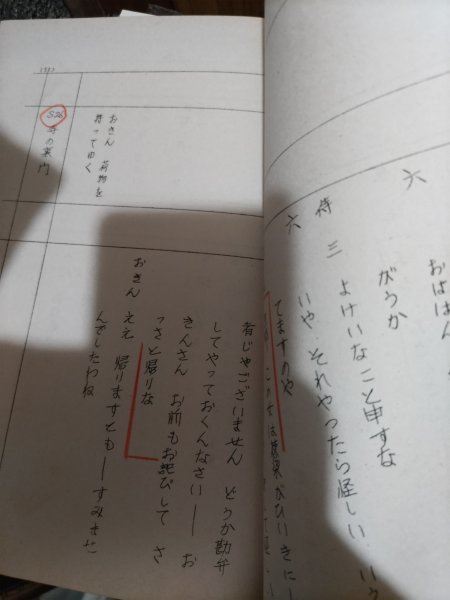 六
おばはん
がうか
侍三　よけいなこと申すな
六　いや、それやったら怪しい
てますのや
者じゃございません　どうか勘弁
してやっておくんなさい——　お
きんさん　お前もお詫びして　さ
っさと帰りな
おきん　ええ　帰りますとも——すみませ
んでしたわね
おきん　荷物を
持ってゆく
S26
寺の裏門